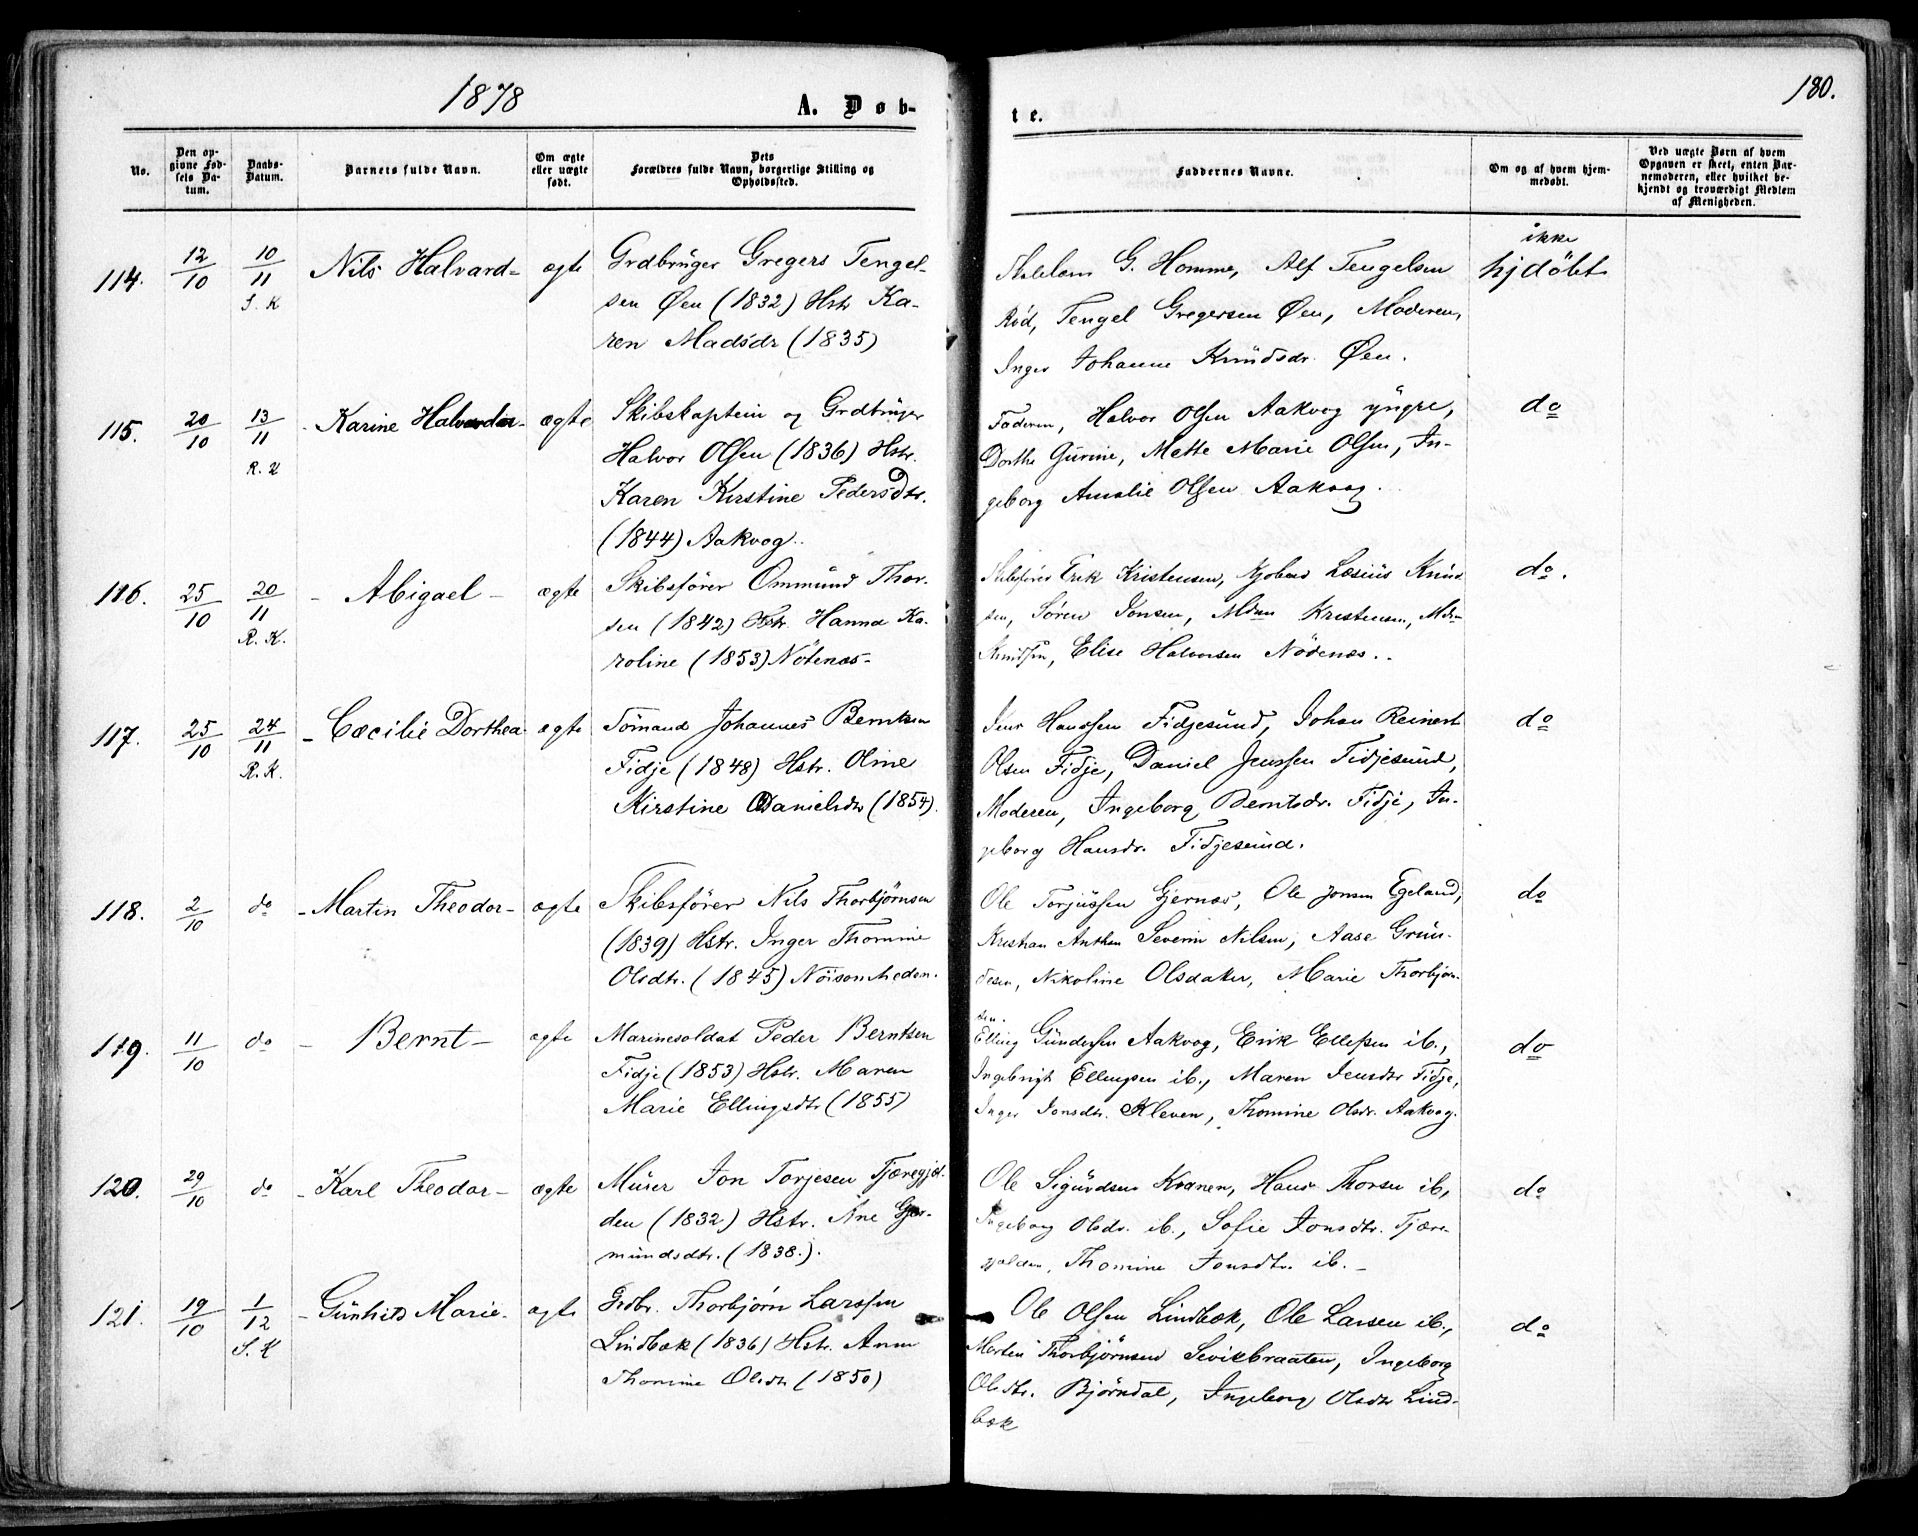 1878
A. Døb-
te.
180.
No.
Den op-
givne Fød-
sels Da-
tum.
Daabs-
Datum.
Barnets fulde Navn.
Om ægte
eller uægte
født.
Dets
Forældres fulde Navn, borgerlige Stilling og
Opholdssted.
Faddernes Navne.
Om og af hvem hjem-
medøbt.
Ved uægte Børn af hvem
Opgaven er skeet, enten Bar-
nemoderen, eller hvilket be-
kjendt og troværdigt Medlem
af Menigheden.
114. 12/10 10/11 S. K Nils Halvard- ægte
Grdbruger Gregers Tengel-
sen Øen (1832) Hstr Ka-
ren Madsdr (1835)
G. Homme, Alf Tengelsen
Rød, Tengel Gregersen Øen, Moderen,
Inger Johanne Knudsdr. Øen.
ikke
hjdöbt
115. 20/10 13/11 R. K - Karine - ægte
Skibskaptein og Grdbruger
Halvor Olsen (1836) Hstr.
Karen Kirstine Pedersdtr.
(1844) Aakvog..
Faderen, Halvor Olsen Aakvog yngre,
Dorthe Gurine, Mette Marie Olsen, In-
geborg Amalie Olsen Aakvog.
do
116. 25/10 20/11 R. K. - Abigael - ægte
Skibsfører Ommund Thor-
sen (1842) Hstr. Hanna Ka-
roline (1853) Nötenæs-
Skibsfører Erik Kristensen, Knud
sen, Sören Jonsen, Mdm Kristensen, Mdm
Knudsen, Elise Halvorsen Nödenæs..
do.
117. 25/10 24/11 R. K. - Cæcilie Dorthea ægte
Sömand Johannes Berntsen
Fidje (1848) Hstr. Oline
Kirstine Danielsdtr (1854).
Jens Hanssen Fidjesund, Johan Reinert
Olsen Fidje, Daniel Jenssen Fidjesund,
Moderen, Ingeborg Berntsdr. Fidje, In-
geborg Hansdr. Fidjesund.
do
118. 2/10 do - Martin Theodor - ægte
Skibsfører Nils Thorbjørnsen
(1839) Hstr. Inger Thomine
Olsdtr. (1845) Nöisomheden.
Ole Torjussen Gjernæs, Ole Jonsen Egeland,
Kristian Anthon Severin Nilsen, Aase Grun-
desen, Nikoline Olsdatter, Marie Thorbjørn-
sen.
do
119. 11/10 do - Bernt - ægte
Marinesoldat Peder Berntsen
Fidje (1853) Hstr. Maren
Marie Ellingsdtr (1855)
Elling Gundersen Aakvog, Erik Ellefsen ib.,
Ingebrigt Ellingsen ib., Maren Jensdtr Fidje,
Inger Jonsdtr. Kleven, Thomine Olsdr. Aakvog.
do
120. 29/10 do - Karl Theodor - ægte
Murer Jon Torjesen Tjæregjel-
den (1832) Hstr. Ane Gjer-
mundsdtr. (1838.).
Ole Sigurdsen Kranen, Hans Thorsen ib,
Ingeborg Olsdr. ib., Sofie Jonsdtr. Tjære-
gjelden, Thomine Jonsdtr. ib. -
do
121. 19/10 1/12 S. K - Gunhild Marie - ægte
Grdbr. Thorbjørn Larssen
Lindbæk (1836) Hstr. Anne
Thomine Olsdtr (1850)
Ole Olsen Lindbæk, Ole Larsen ib.,
Martin Thorbjørnsen Sevikbraaten, Ingeborg
Olsdtr. Bjørndal, Ingeborg Olsdtr Lind-
bæk
do